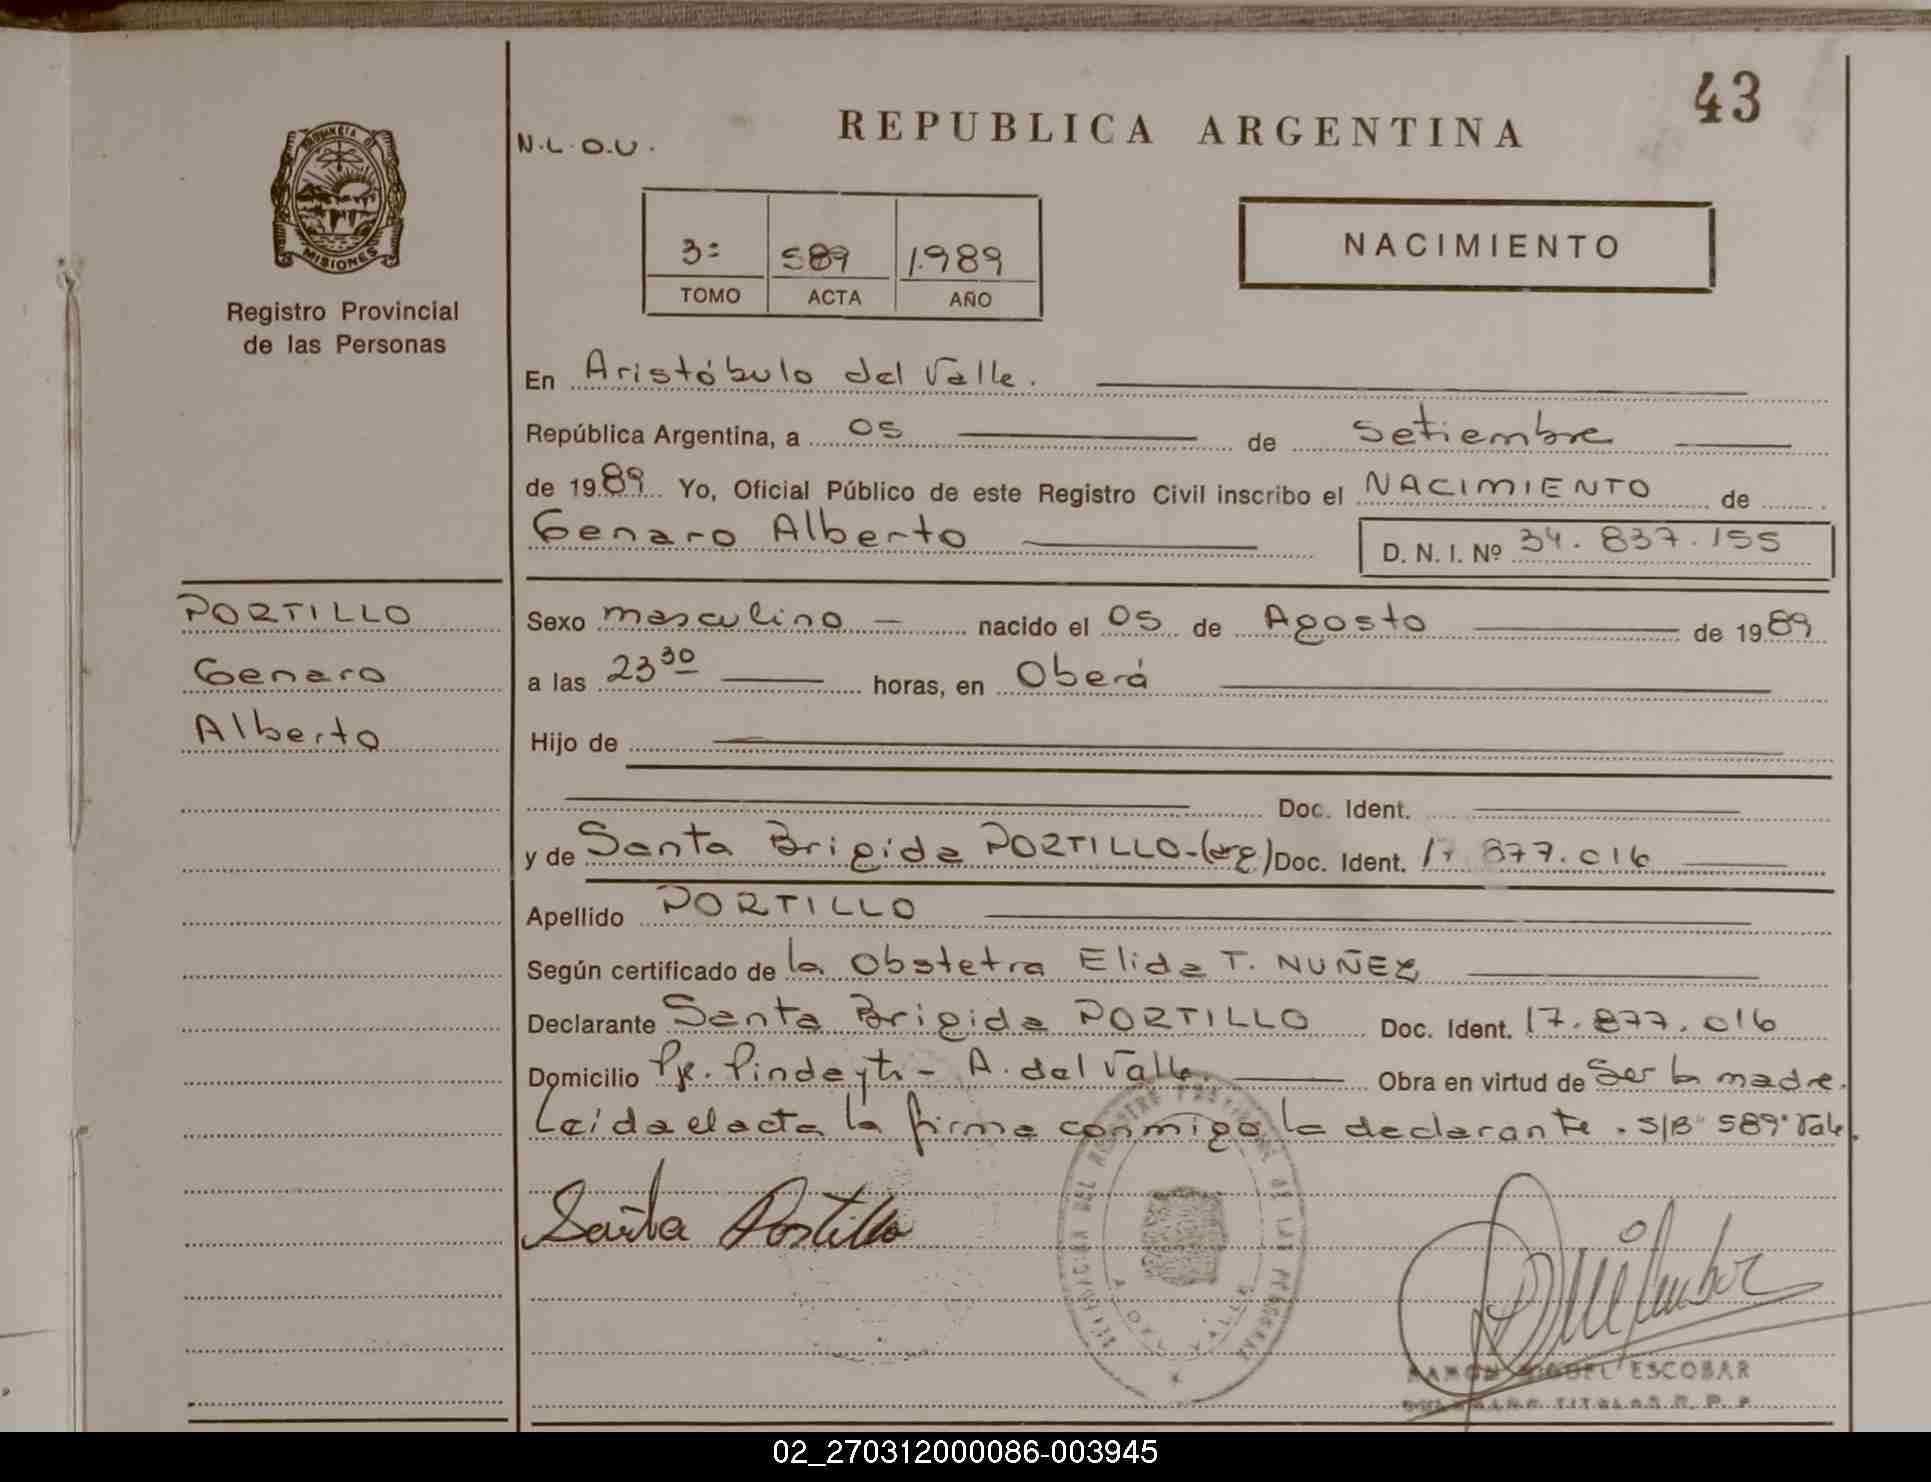 43
REPUBLICA ARGENTINA
N.L.O.U.
PROVINCIA DE
MISIONES
Registro Provincial
de las Personas
3= 589 1.989
TOMO ACTA AÑO
NACIMIENTO
En Aristóbulo del Valle.
República Argentina, a 05 de Setiembre
de 1989 Yo, Oficial Público de este Registro Civil inscribo el NACIMIENTO de
Genaro Alberto D. N. I. Nº 34.837.155
PORTILLO
Genaro
Alberto
Sexo masculino nacido el 05 de Agosto de 1989
a las 23 30 horas, en Oberá
Hijo de
Doc. Ident.
y de Santa Brigida PORTILLO-(arg) Doc. Ident. 17.877.016
Apellido PORTILLO
Según certificado de la Obstetra Elida T. NUÑEZ
Declarante Santa Brigida PORTILLO Doc. Ident. 17.877.016
Domicilio Pje. Pindayti - A. del Valle. Obra en virtud de Ser la madre.
Leída el acta la firma conmigo la declarante. S/B "589" Vale.
Santa Portillo
A. DEL VALLE
RAMON MIGUEL ESCOBAR
02_270312000086-003945